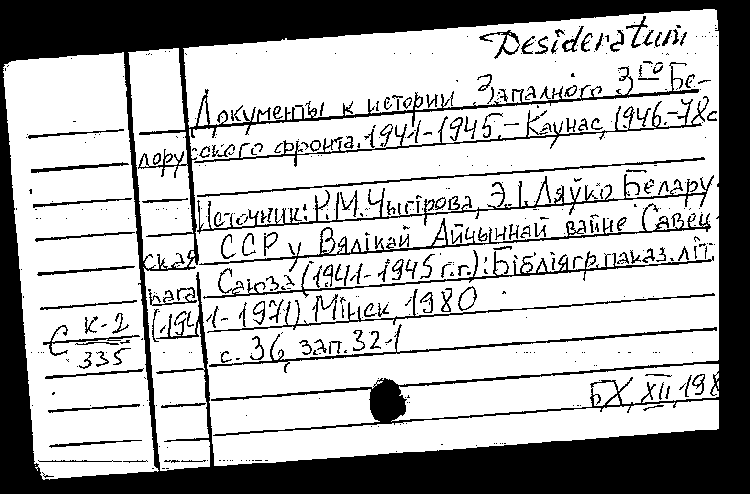 Desideratum
Документы к истории Западного 3го Бе-
лорусского фронта. 1941-1945. - Каунас, 1946.-78с
Источник: Р.М. Чыгірова, Э.І. Ляўко Белару-
ская ССР у Вялікай Айчыннай вайне Савец-
кага Саюза (1941-1945 г.г.): Бібліягр. паказ. літ.
(1941-1971). Мінск, 1980
с. 36, зап. 321
С К-2
335
БХ, XII, 198